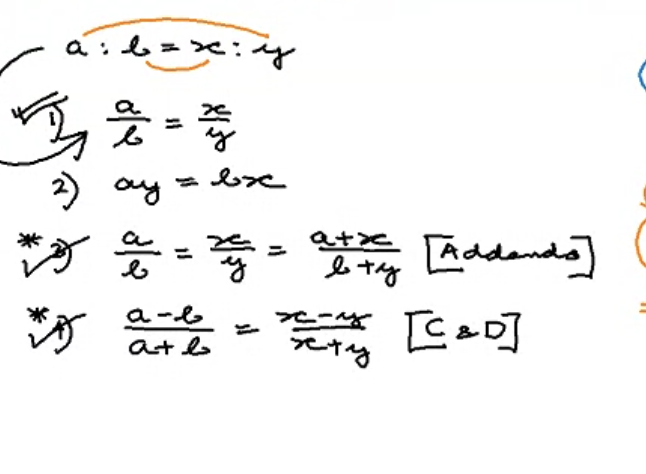 a : b = x : y
1) a/b = x/y
2) ay = bx
* 3) a/b = x/y = (a+x)/(b+y) [Addendo]
* 4) (a-b)/(a+b) = (x-y)/(x+y) [C & D]